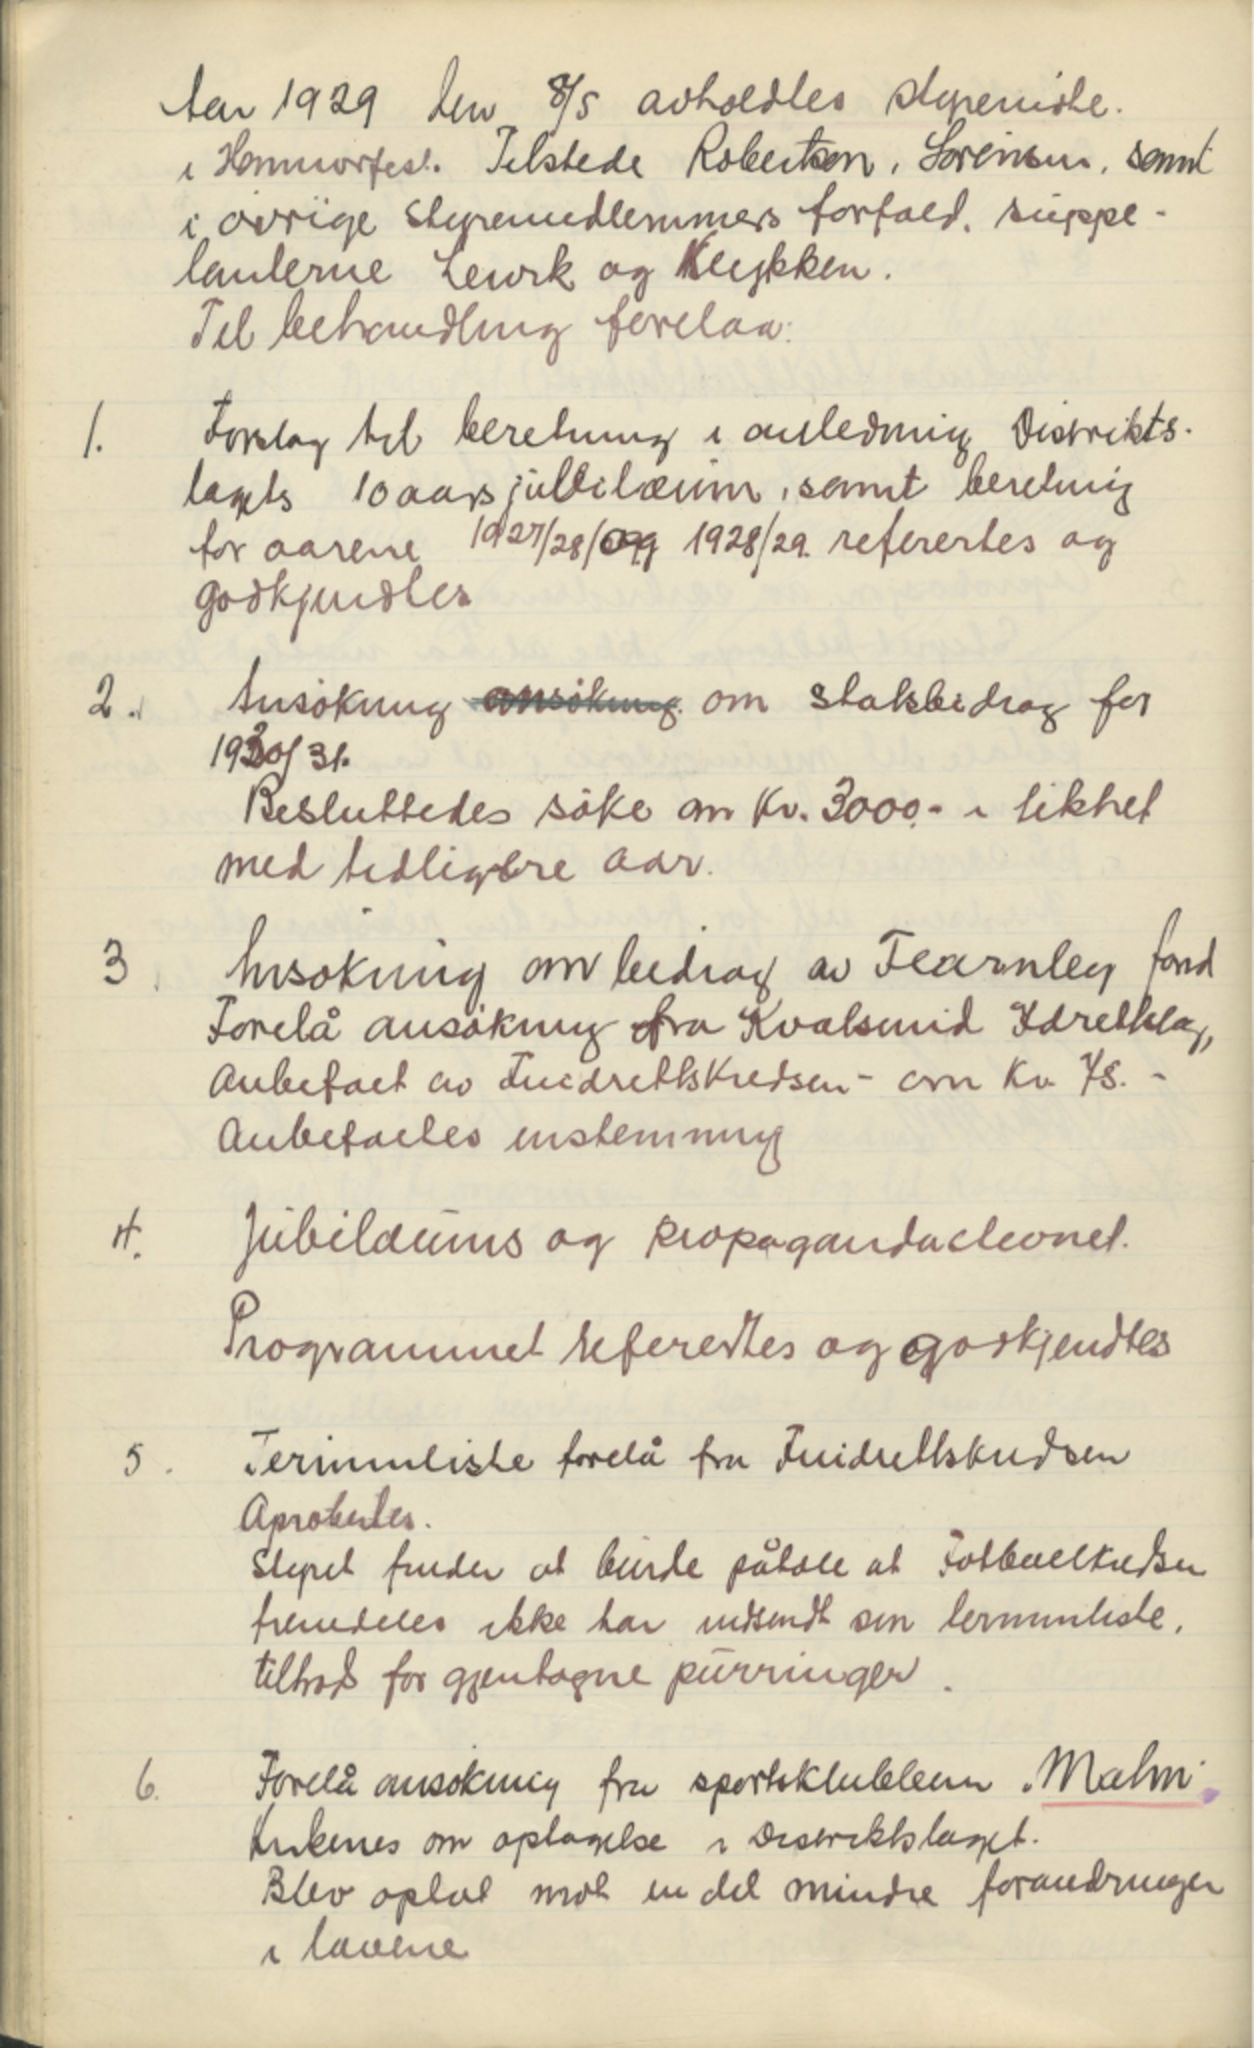 Aar 1929 den 8/5 avholdtes styremöte.
i Hammerfest. Tilstede Robertsen, Sörensen, samt
i övrige styremedlemmers forfald, suppe-
lanterne Lewik og Klykken.
Til behandling forelaa:
1. Forslag til beretning i anledning Distrikts-
lagets 10 aars jubilæum, samt beretning
for aarene 1927/28/og 1928/29. referertes og
godkjendtes
2. Ansökning ansökning om statsbidrag for
1930/31.
Besluttedes söke om Kr. 3000.- i likhet
med tidligere aar.
3. Ansökning om bidrag av Fearnley fond
Forelå ansökning fra Kvalsund Idretslag,
Anbefalt av Friidrettskredsen - om Kr 75.-
Anbefales enstemmig
4. Jubilæums og propagandastevnet.
Programmet referertes og godkjendtes
5. Terminliste forelå fra Friidrettskredsen
Aprobertes.
Styret finder at burde påtale at Fotballkredsen
fremdeles ikke har indsendt sin terminliste,
tiltrods for gjentagne purringer.
6. Forelå ansökning fra sportsklubben "Malm"
Kirkenes om optagelse i Distriktslaget.
Blev optat mot en del mindre forandringer
i lovene